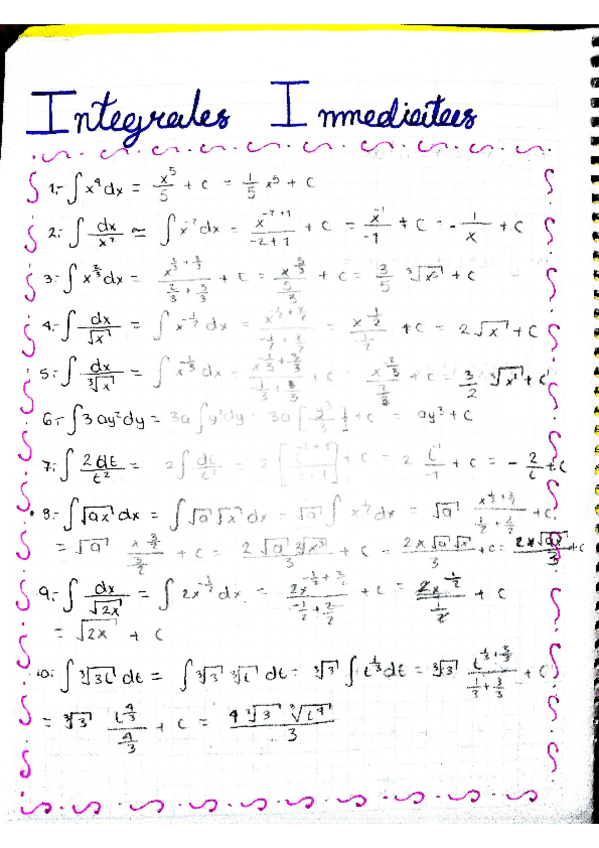 Integrales Inmediatas
1.- ∫x⁴dx = x⁵/5 + c = 1/5 x⁵ + c
2.- ∫ dx/x² = ∫x⁻²dx = x⁻²⁺¹/-2+1 + c = x⁻¹/-1 + c = - 1/x + c
3.- ∫x^(2/3)dx = x^(2/3 + 3/3)/(2/3 + 3/3) + c = x^(5/3)/(5/3) + c = 3/5 ∛x⁵ + c
4.- ∫ dx/√x = ∫x^(-1/2)dx = x^(-1/2 + 2/2)/(-1/2 + 2/2) = x^(1/2)/(1/2) + c = 2√x + c
5.- ∫ dx/∛x = ∫x^(-1/3)dx = x^(-1/3 + 3/3)/(-1/3 + 3/3) + c = x^(2/3)/(2/3) + c = 3/2 ∛x² + c
6.- ∫3ay²dy = 3a∫y²dy = 3a[y³/3] + c = ay³ + c
7.- ∫ 2dt/t² = 2∫ dt/t² = 2[t⁻²⁺¹/-2+1] + c = 2 t⁻¹/-1 + c = - 2/t + c
8.- ∫√ax dx = ∫√a √x dx = √a ∫x^(1/2)dx = √a x^(1/2 + 2/2)/(1/2 + 2/2) + c
= √a x^(3/2)/(3/2) + c = 2√a ²√x³/3 + c = 2x√a√x/3 + c = 2x√ax/3 + c
9.- ∫ dx/√2x = ∫2x^(-1/2)dx = 2x^(-1/2 + 2/2)/(-1/2 + 2/2) + c = 2x^(1/2)/(1/2) + c
= √2x + c
10.- ∫∛3t dt = ∫∛3 ∛t dt = ∛3 ∫t^(1/3)dt = ∛3 t^(1/3 + 3/3)/(1/3 + 3/3) + c
= ∛3 t^(4/3)/(4/3) + c = 4∛3 ∛t⁴/3